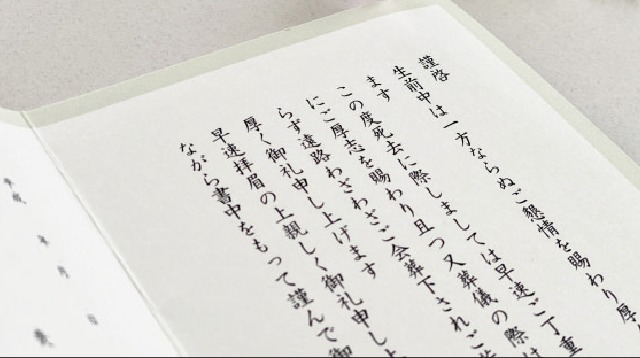 謹啓
生前中は一方ならぬご懇情を賜わり厚
ます
この度死去に際しましては早速ご丁重
にご厚志を賜わり且つ又葬儀の際は
らず遠路わざわざご会葬下されご
厚く御礼申し上げます
早速拝眉の上親しく御礼申し上
ながら書中をもって謹んで御